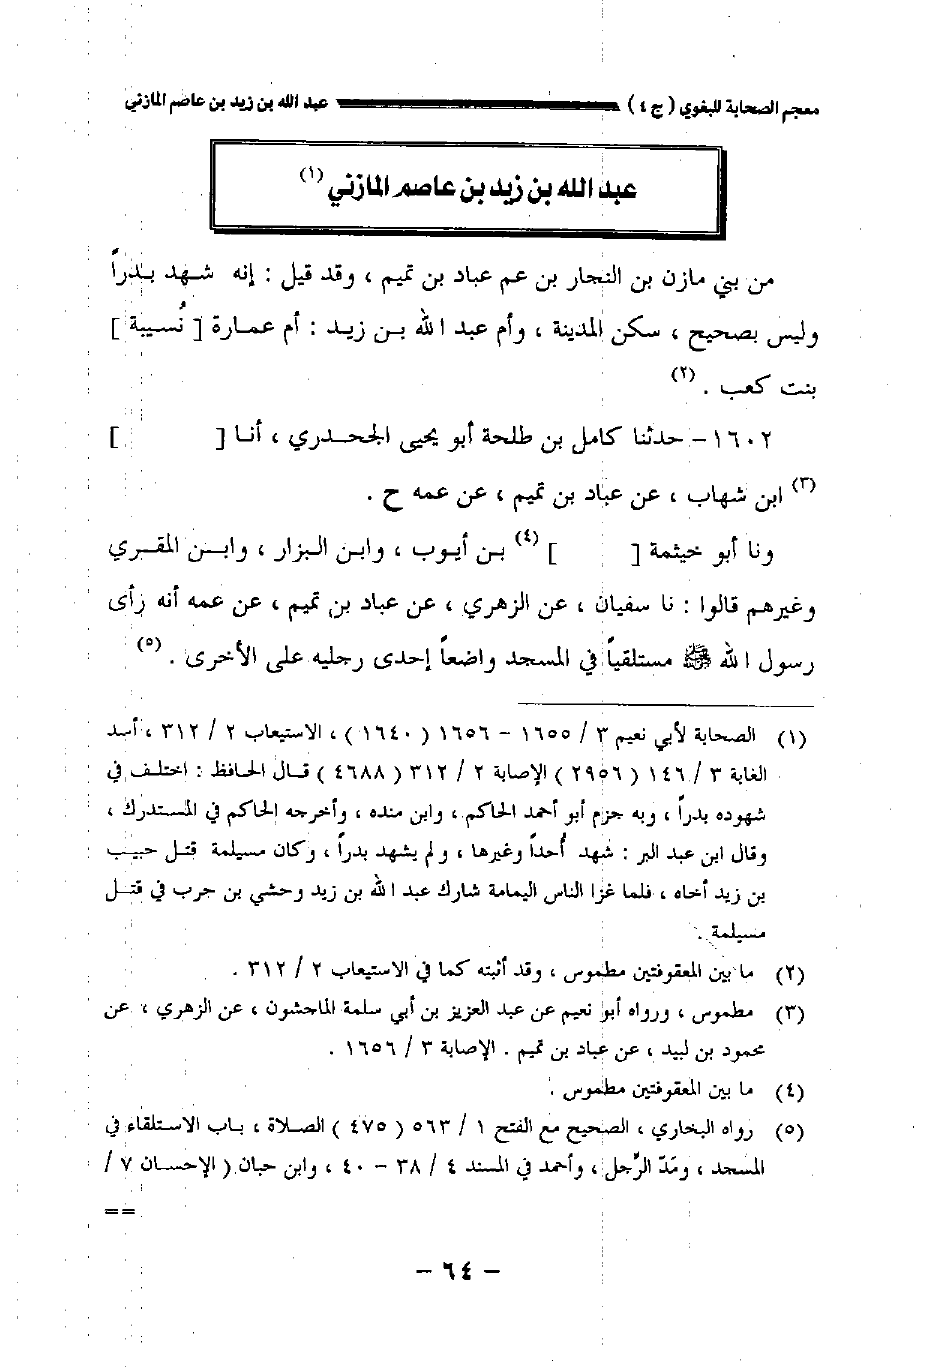 معجم الصحابة للبغوي ( ج ٤ ) عبد الله بن زيد بن عاصم المازني
عبد الله بن زيد بن عاصم المازني (١)
من بني مازن بن النجار بن عم عباد بن تميم ، وقد قيل : إنه شهد بدراً
وليس بصحيح ، سكن المدينة ، وأم عبد الله بن زيد : أم عمارة [ نُسيبة ]
بنت كعب . (٢)
١٦٠٢ – حدثنا كامل بن طلحة أبو يحيى الجحدري ، أنا [ ]
(٣) ابن شهاب ، عن عباد بن تميم ، عن عمه ح .
ونا أبو خيثمة [ ] (٤) بن أيوب ، وابن البزار ، وابن المقري
وغيرهم قالوا : نا سفيان ، عن الزهري ، عن عباد بن تميم ، عن عمه أنه رأى
رسول الله ﷺ مستلقياً في المسجد واضعاً إحدى رجليه على الأخرى . (٥)
(١) الصحابة لأبي نعيم ٣ / ١٦٥٥ – ١٦٥٦ ( ١٦٤٠ ) ، الاستيعاب ٢ / ٣١٢ ، أسد
الغابة ٣ / ١٤٦ ( ٢٩٥٦ ) الإصابة ٢ / ٣١٢ ( ٤٦٨٨ ) قال الحافظ : اختلف في
شهوده بدراً ، وبه جزم أبو أحمد الحاكم ، وابن منده ، وأخرجه الحاكم في المستدرك ،
وقال ابن عبد البر : شهد أُحداً وغيرها ، ولم يشهد بدراً ، وكان مسيلمة قتل حبيب
بن زيد أخاه ، فلما غزا الناس اليمامة شارك عبد الله بن زيد وحشي بن حرب في قتل
مسيلمة .
(٢) ما بين المعقوفتين مطموس ، وقد أثبته كما في الاستيعاب ٢ / ٣١٢ .
(٣) مطموس ، ورواه أبو نعيم عن عبد العزيز بن أبي سلمة الماحشون ، عن الزهري ، عن
محمود بن لبيد ، عن عباد بن تميم . الإصابة ٣ / ١٦٥٦ .
(٤) ما بين المعقوفتين مطموس .
(٥) رواه البخاري ، الصحيح مع الفتح ١ / ٥٦٣ ( ٤٧٥ ) الصلاة ، باب الاستلقاء في
المسجد ، ومَدّ الرِّجل ، وأحمد في المسند ٤ / ٣٨ – ٤٠ ، وابن حبان ( الإحسان ٧ /
==
– ٦٤ –